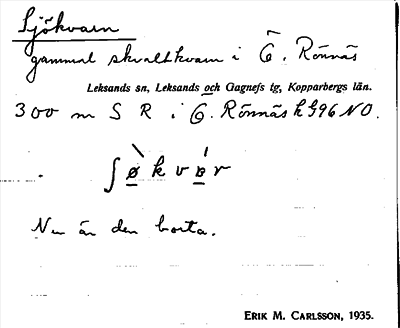 Sjökvarn
gammal skvaltkvarn i Ö. Rönnäs
Leksands sn, Leksands och Gagnefs tg, Kopparbergs län.
300 m S R i Ö. Rönnäs k 996 NO.
ʃø̱̀kvɒ̱́r
Nu är den borta.
ERIK M. CARLSSON, 1935.